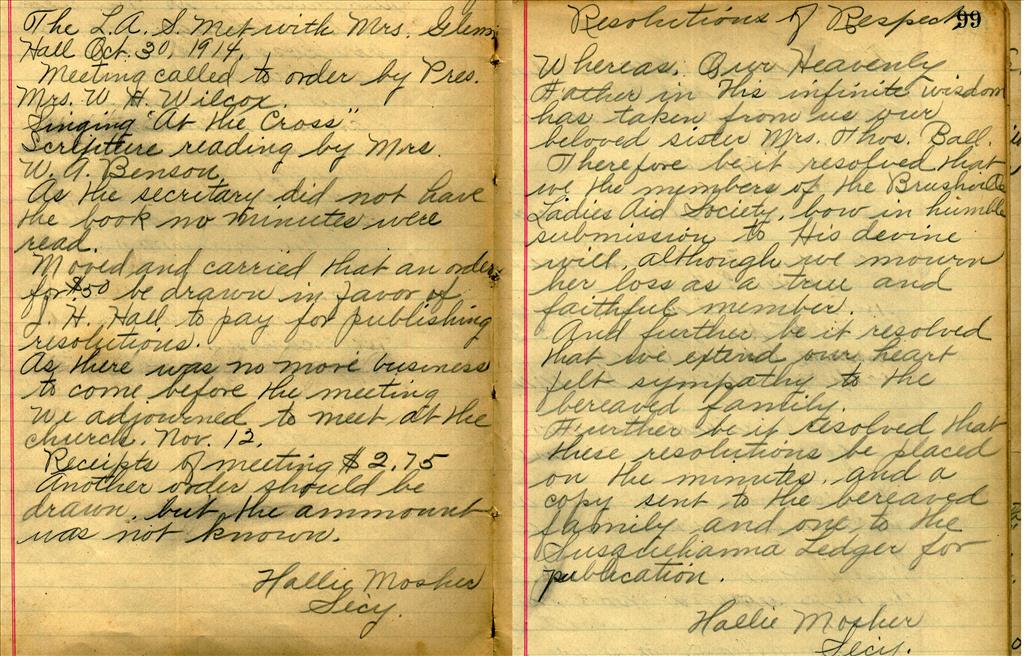 The L.A. S. Met with Mrs. Glenn
Hall Oct. 30, 1914.
Meeting called to order by Pres.
Mrs. W. H. Wilcox.
Singing "At the Cross"
Scripture reading by Mrs.
W. A. Benson.
As the secritary did not have
the book no minutes were
read.
Moved and carried that an order
for $.50 be drawn in favor of
H. Hall to pay for publishing
resolutions.
As there was no more business
to come before the meeting
We adjourned to meet at the
church. Nov. 12.
Receipts of meeting $2.75
Another order should be
drawn, but the ammount
was not known.
Hallie Mosher
Secy.
Resolutions of Respect 99
Whereas, Our Heavenly
Father in His infinite wisdom
has taken from us our
beloved sister Mrs. Thos. Ball.
Therefore be it resolved that
we the members of the Brushville
Ladies Aid Society, bow in humble
submission to His devine
will, although we mourn
her loss as a true and
faithful member.
And further be it resolved
that we extend our heart
felt sympathy to the
bereaved family.
Further be it resolved that
these resolutions be placed
on the minutes, and a
copy sent to the bereaved
family and one to the
Susquehanna Ledger for
publication.
Hallie Mosher
Secy.